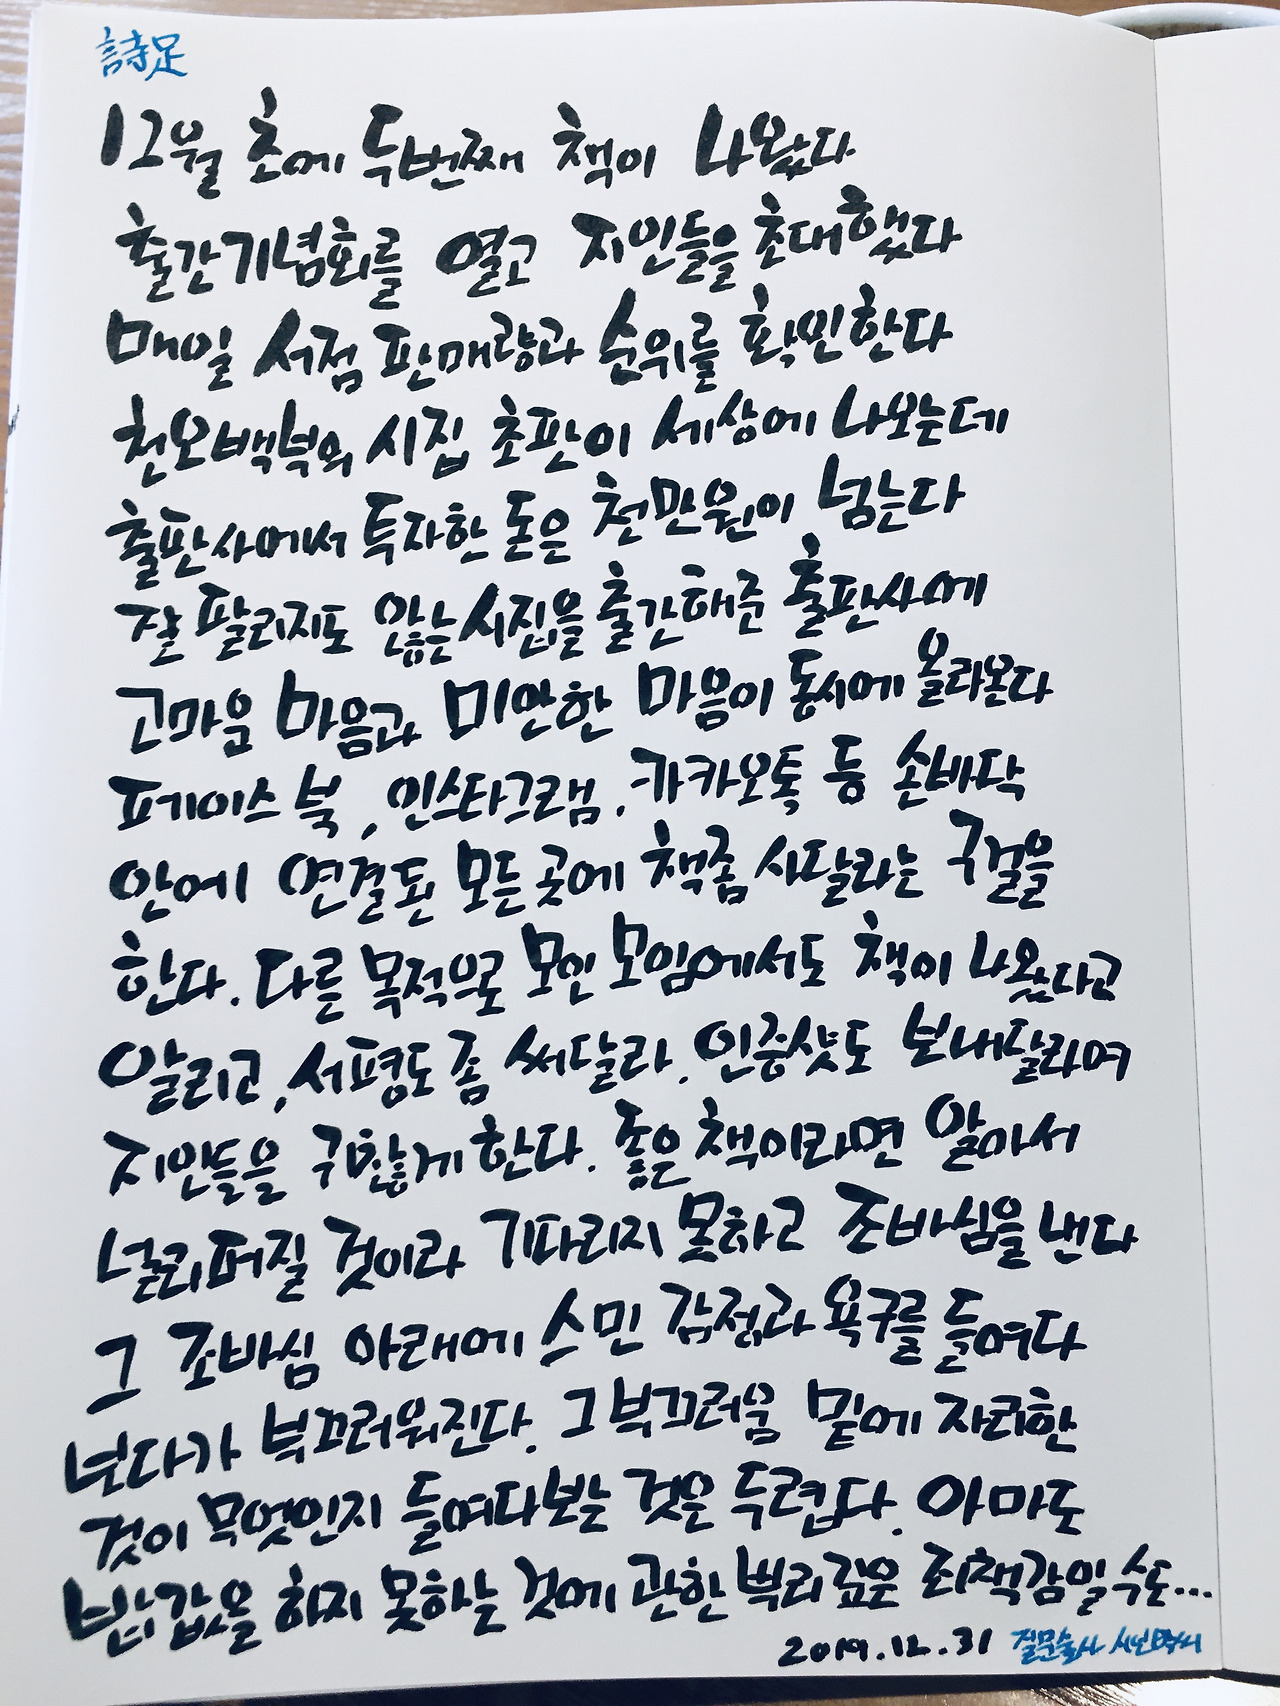 詩足
12월 초에 두번째 책이 나왔다
출간기념회를 열고 지인들을 초대했다
매일 서점 판매량과 순위를 확인한다
천오백부의 시집 초판이 세상에 나오는데
출판사에서 투자한 돈은 천만원이 넘는다
잘 팔리지도 않는 시집을 출간해준 출판사에
고마운 마음과 미안한 마음이 동시에 올라온다
페이스북, 인스타그램, 카카오톡 등 손바닥
안에 연결된 모든 곳에 책좀 사달라는 구걸을
한다. 다른 목적으로 모인 모임에서도 책이 나왔다고
알리고, 서평도 좀 써달라. 인증샷도 보내달라며
지인들을 귀찮게 한다. 좋은 책이라면 알아서
널리퍼질 것이라 기다리지 못하고 조바심을 낸다
그 조바심 아래에 스민 감정과 욕구를 들여다
보다가 부끄러워진다. 그 부끄러움 밑에 자리한
것이 무엇인지 들여다보는 것은 두렵다. 아마도
밥값을 하지 못하는 것에 관한 뿌리깊은 죄책감일 수도...
2019.12.31 질문술사